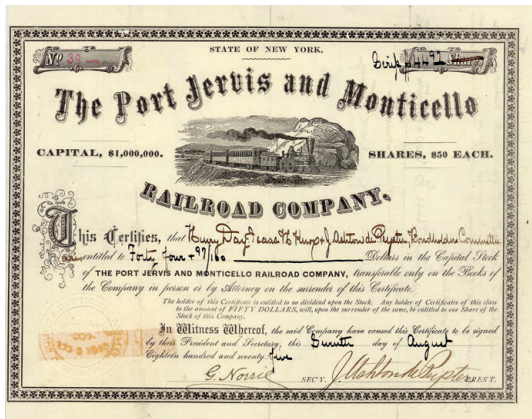 STATE OF NEW YORK.
No 39
Scrip $44 92
The Port Jervis and Monticello
CAPITAL, $1,000,000.
SHARES, $50 EACH.
RAILROAD COMPANY.
This Certifies, that Henry Day, Isaac H. Knapp & J Ashton de Peyster, Bondholders Committee
are entitled to Forty four + 92/100 Dollars in the Capital Stock
of THE PORT JERVIS AND MONTICELLO RAILROAD COMPANY, transferable only on the Books of
the Company in person or by Attorney on the surrender of this Certificate.
The holder of this Certificate is entitled to no dividend upon the Stock. Any holder of Certificates of this class
to the amount of FIFTY DOLLARS, will, upon the surrender of the same, be entitled to one Share of the
Stock of this Company.
In Witness Whereof, the said Company have caused this Certificate to be signed
by their President and Secretary, this day of August
Eighteen hundred and seventy five
G. Norrie SECY. J Ashton de Peyster PREST.